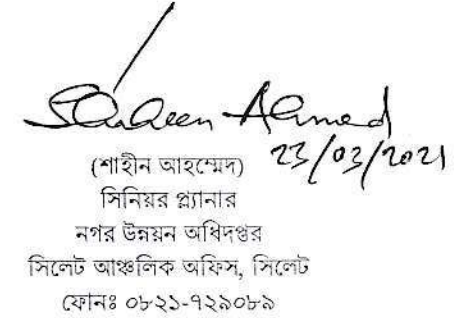 Shaheen Ahmed
23/03/2021
(শাহীন আহম্মেদ)
সিনিয়র প্ল্যানার
নগর উন্নয়ন অধিদপ্তর
সিলেট আঞ্চলিক অফিস, সিলেট
ফোনঃ ০৮২১-৭২৯০৮৯